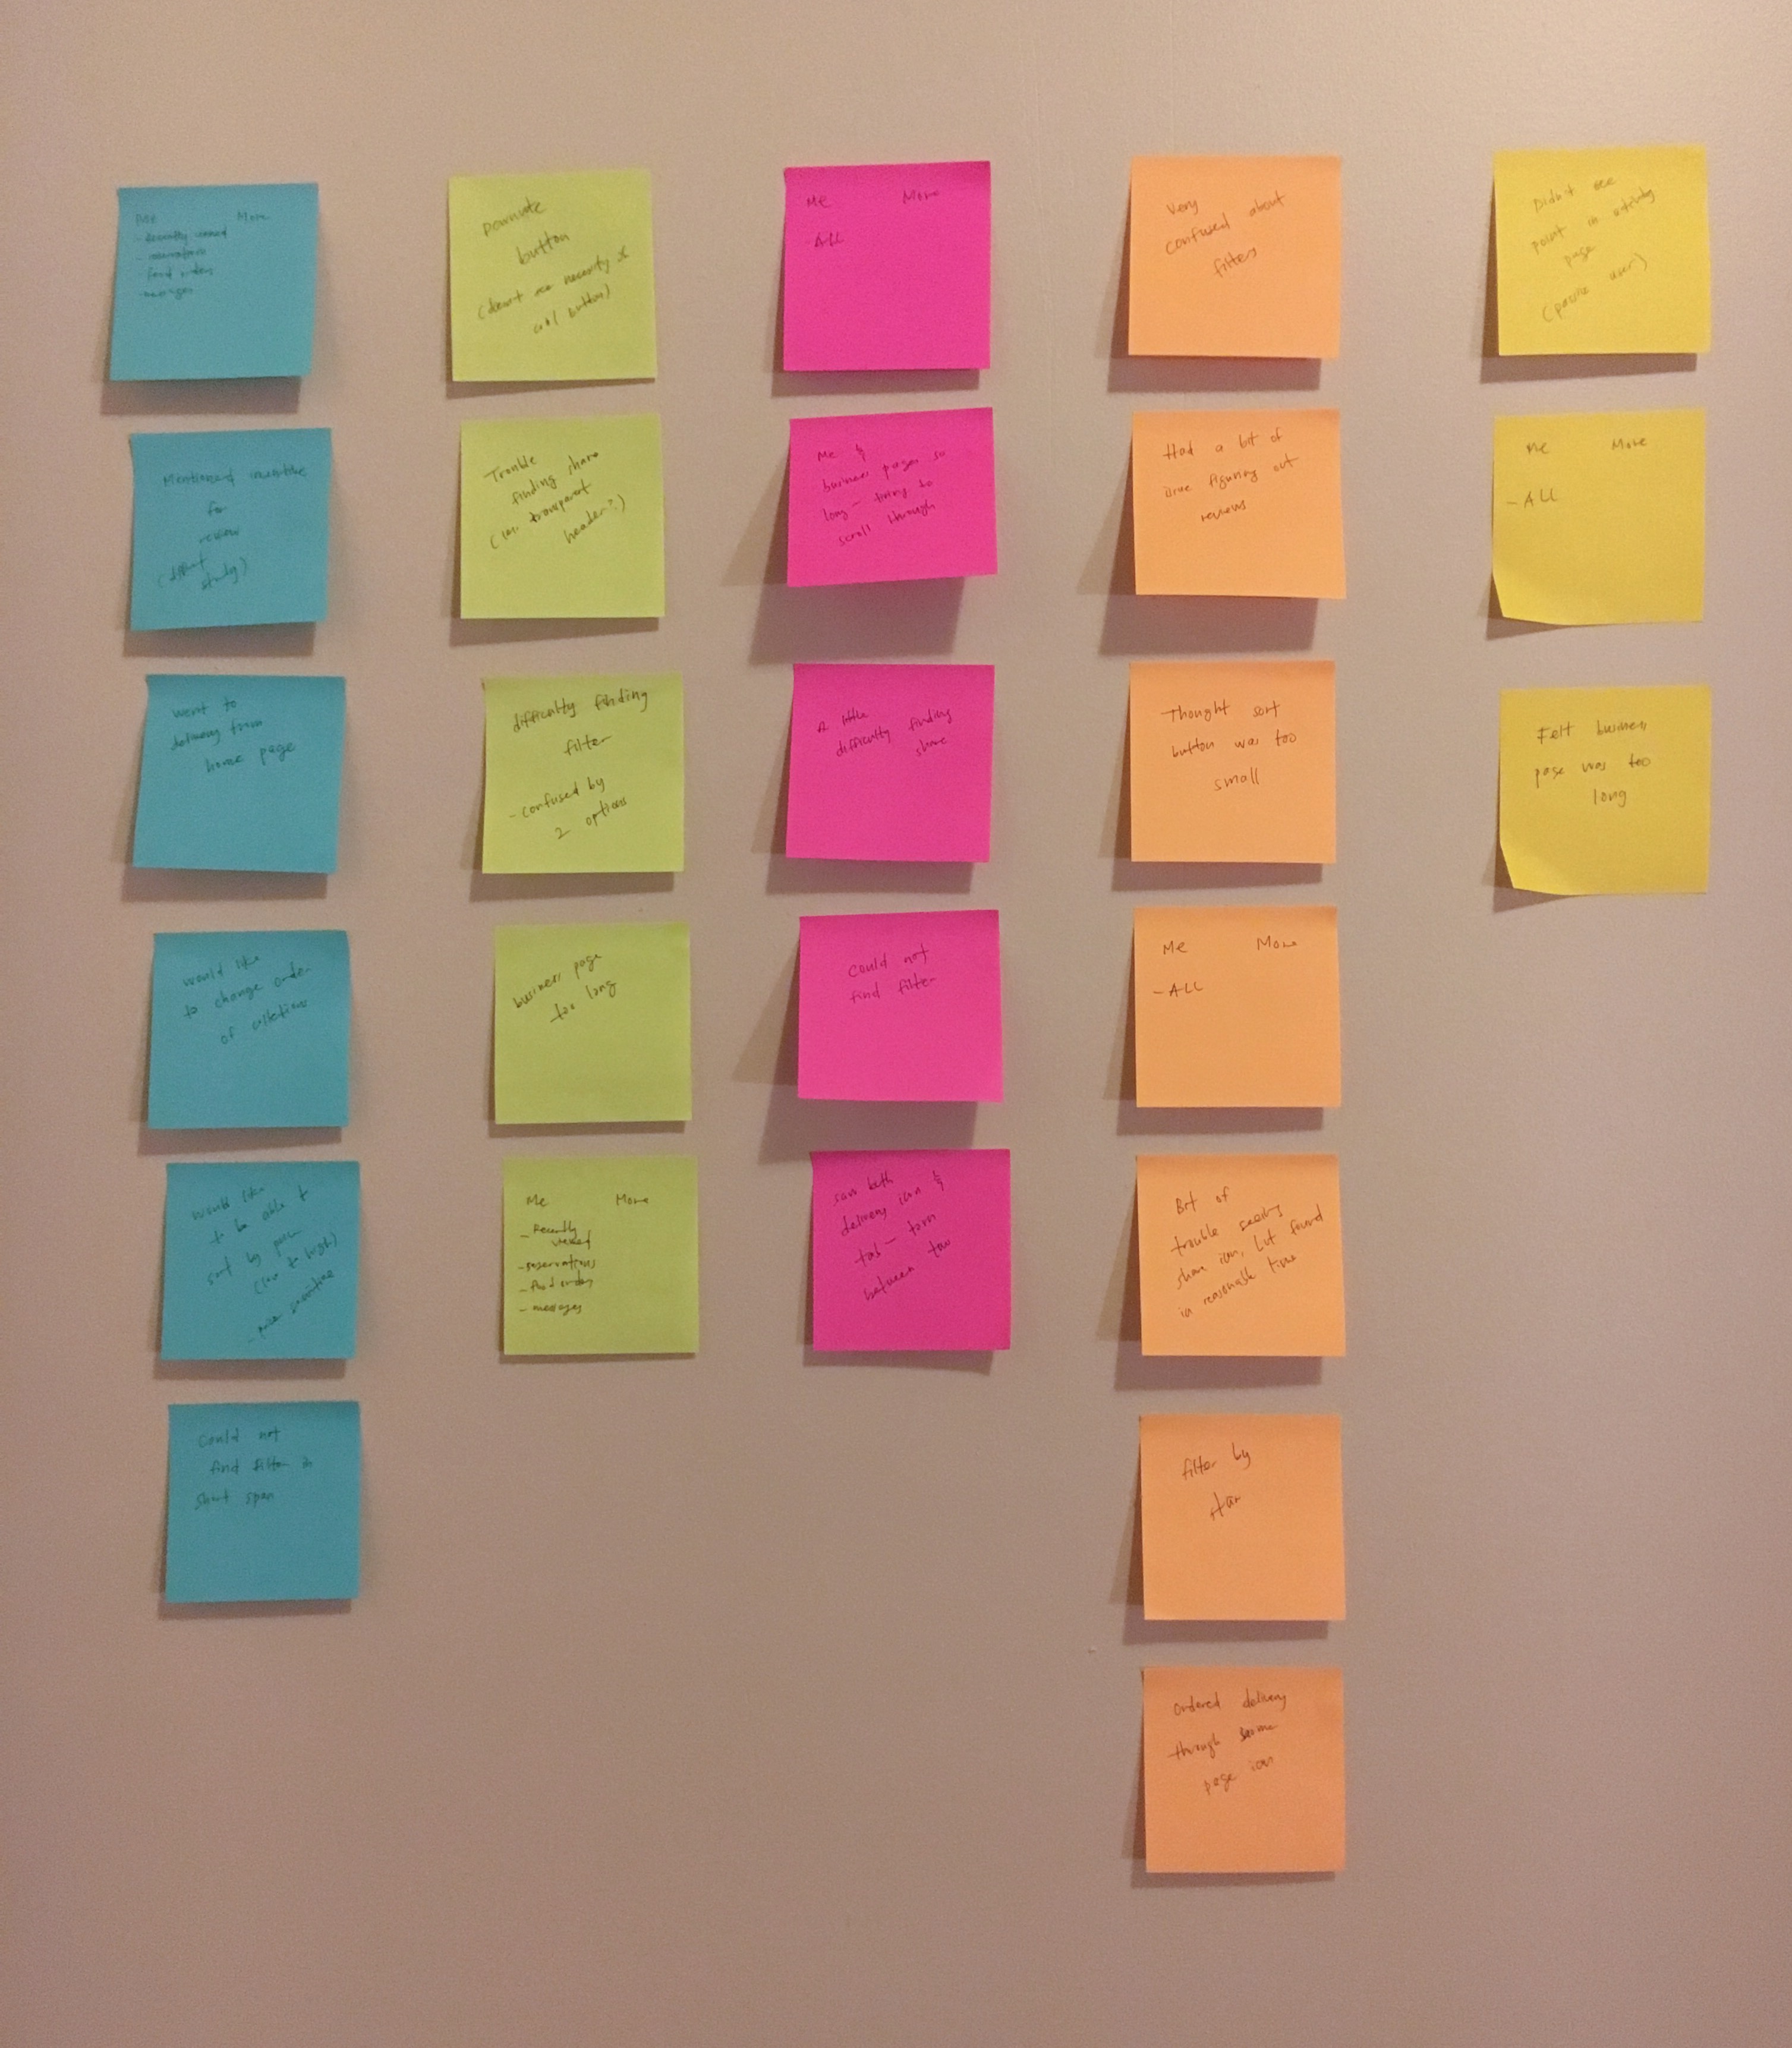 Me More
- Recently viewed
- reservations
- food orders
- messages
Mentioned incentive
for
review
(diff't
study)
went to
delivery from
home page
would like
to change order
of collections
would like
to be able to
sort by price
(low to high)
- price sensitive
Could not
find filter in
short span
Downvote
button
(doesn't see necessity of
cool button)
Trouble
finding share
transparent
header?)
difficulty finding
filter
- confused by
2 options
business page
too long
Me More
- Recently
viewed
- reservations
- food orders
- messages
Me More
- ALL
Me &
business pages so
long — tiring to
scroll through
A little
difficulty finding
share
Could not
find filter
saw both
delivery icon &
tab — torn
between two
Very
confused about
filters
Had a bit of
issue figuring out
reviews
Thought sort
button was too
small
Me More
- ALL
Bit of
trouble seeing
share icon, but found
in reasonable time
filter by
star
ordered delivery
through home
page icon
Didn't see
point in activity
page
(passive user)
Me More
- ALL
Felt business
page was too
long